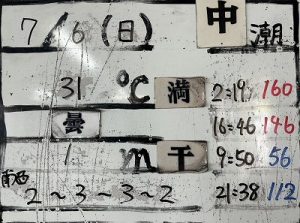 7/6(日) 中潮
31 ℃ 満 2:19 160
曇 16:46 146
1 m 干 9:50 56
南西 2~3~3~2 21:38 112